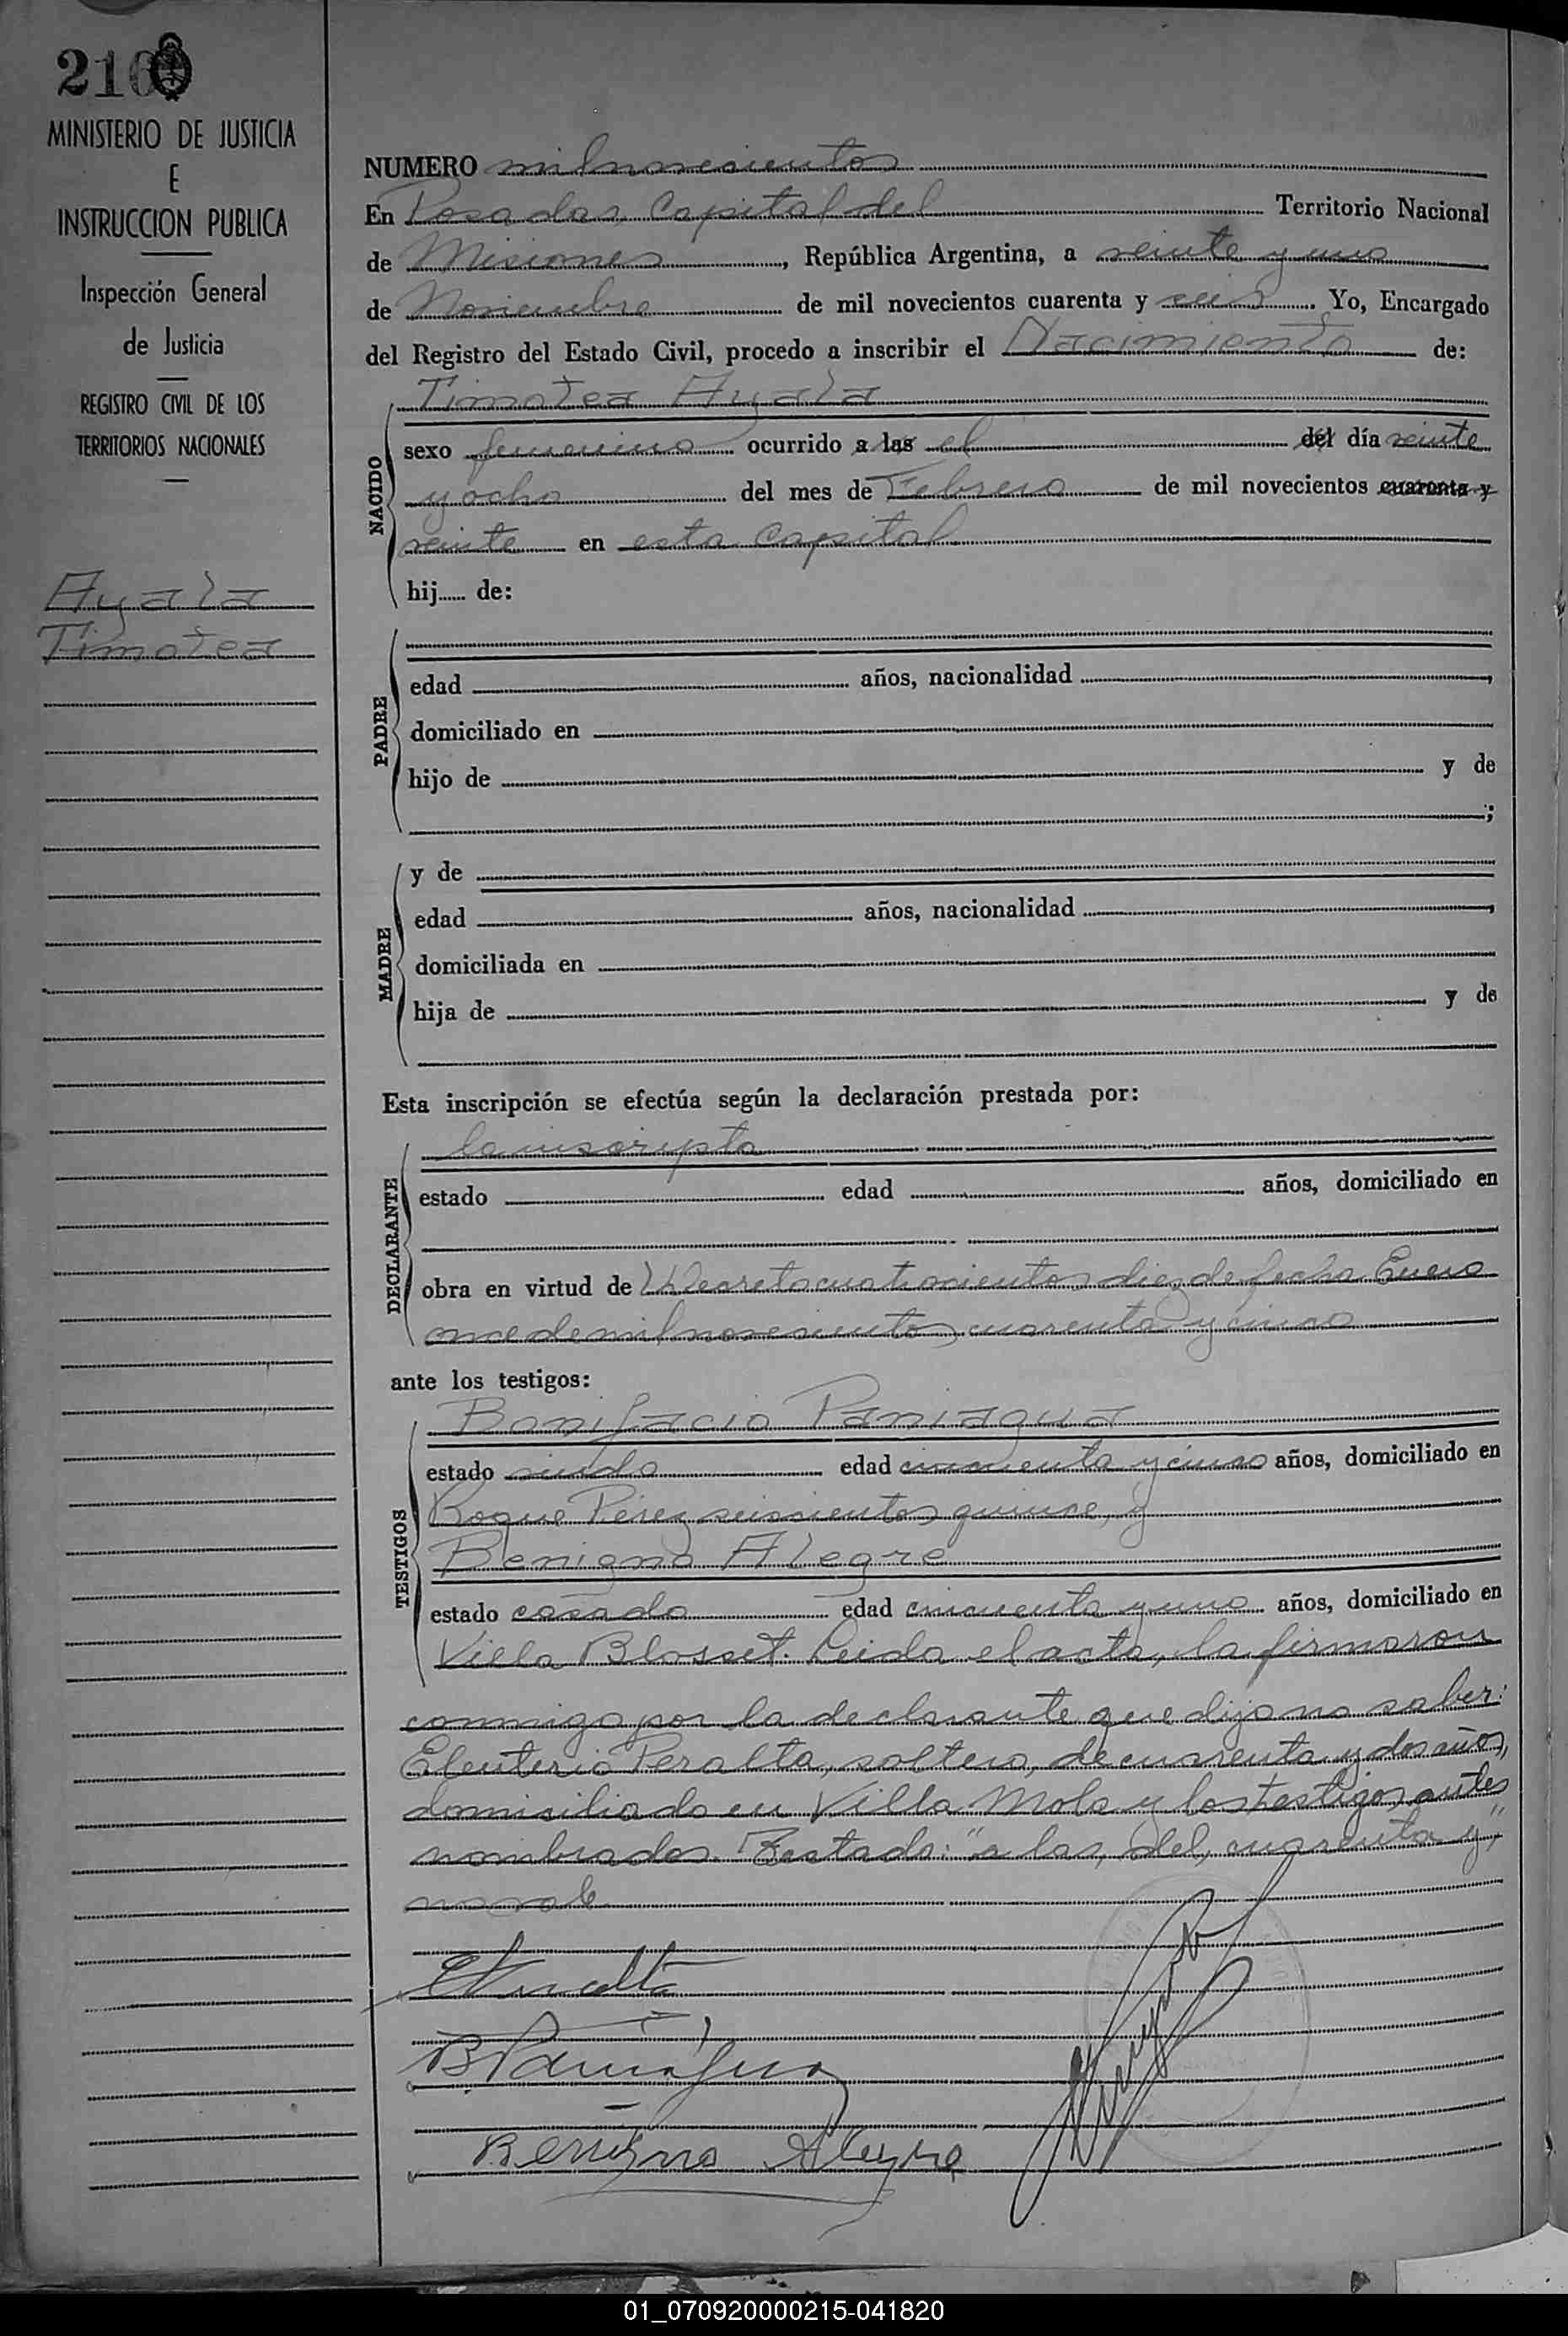 216
MINISTERIO DE JUSTICIA
E
INSTRUCCION PUBLICA
Inspección General
de Justicia
REGISTRO CIVIL DE LOS
TERRITORIOS NACIONALES
Ayala
Timotea
NUMERO mil novecientos
En Posadas, Capital del Territorio Nacional
de Misiones, República Argentina, a veinte y uno
de Noviembre de mil novecientos cuarenta y seis. Yo, Encargado
del Registro del Estado Civil, procedo a inscribir el Nacimiento de:
NACIDO
Timotea Ayala
sexo femenino ocurrido a las el del día veinte
y ocho del mes de Febrero de mil novecientos cuarenta y
veinte en esta Capital
hij...... de:
PADRE
edad años, nacionalidad
domiciliado en
hijo de y de
;
MADRE
y de
edad años, nacionalidad
domiciliada en
hija de y de
Esta inscripción se efectúa según la declaración prestada por:
DECLARANTE
la inscripta
estado edad años, domiciliado en
obra en virtud de Decreto cuatrocientos diez de fecha Enero
once de mil novecientos cuarenta y cinco
ante los testigos:
TESTIGOS
Bonifacio Paniagua
estado viudo edad cincuenta y cinco años, domiciliado en
Roque Pérez seiscientos quince, y
Benigno Alegre
estado casado edad cincuenta y uno años, domiciliado en
Villa Blosset. Leida el acta, la firmaron
conmigo por la declarante que dijo no saber:
Eleuterio Peralta, soltero, de cuarenta y dos años,
domiciliado en Villa Mola y los testigos antes
nombrados. Testado: "a las, del, cuarenta y,"
no vale
EPeralta
B Paniagua
Benigno Alegre
01_070920000215-041820